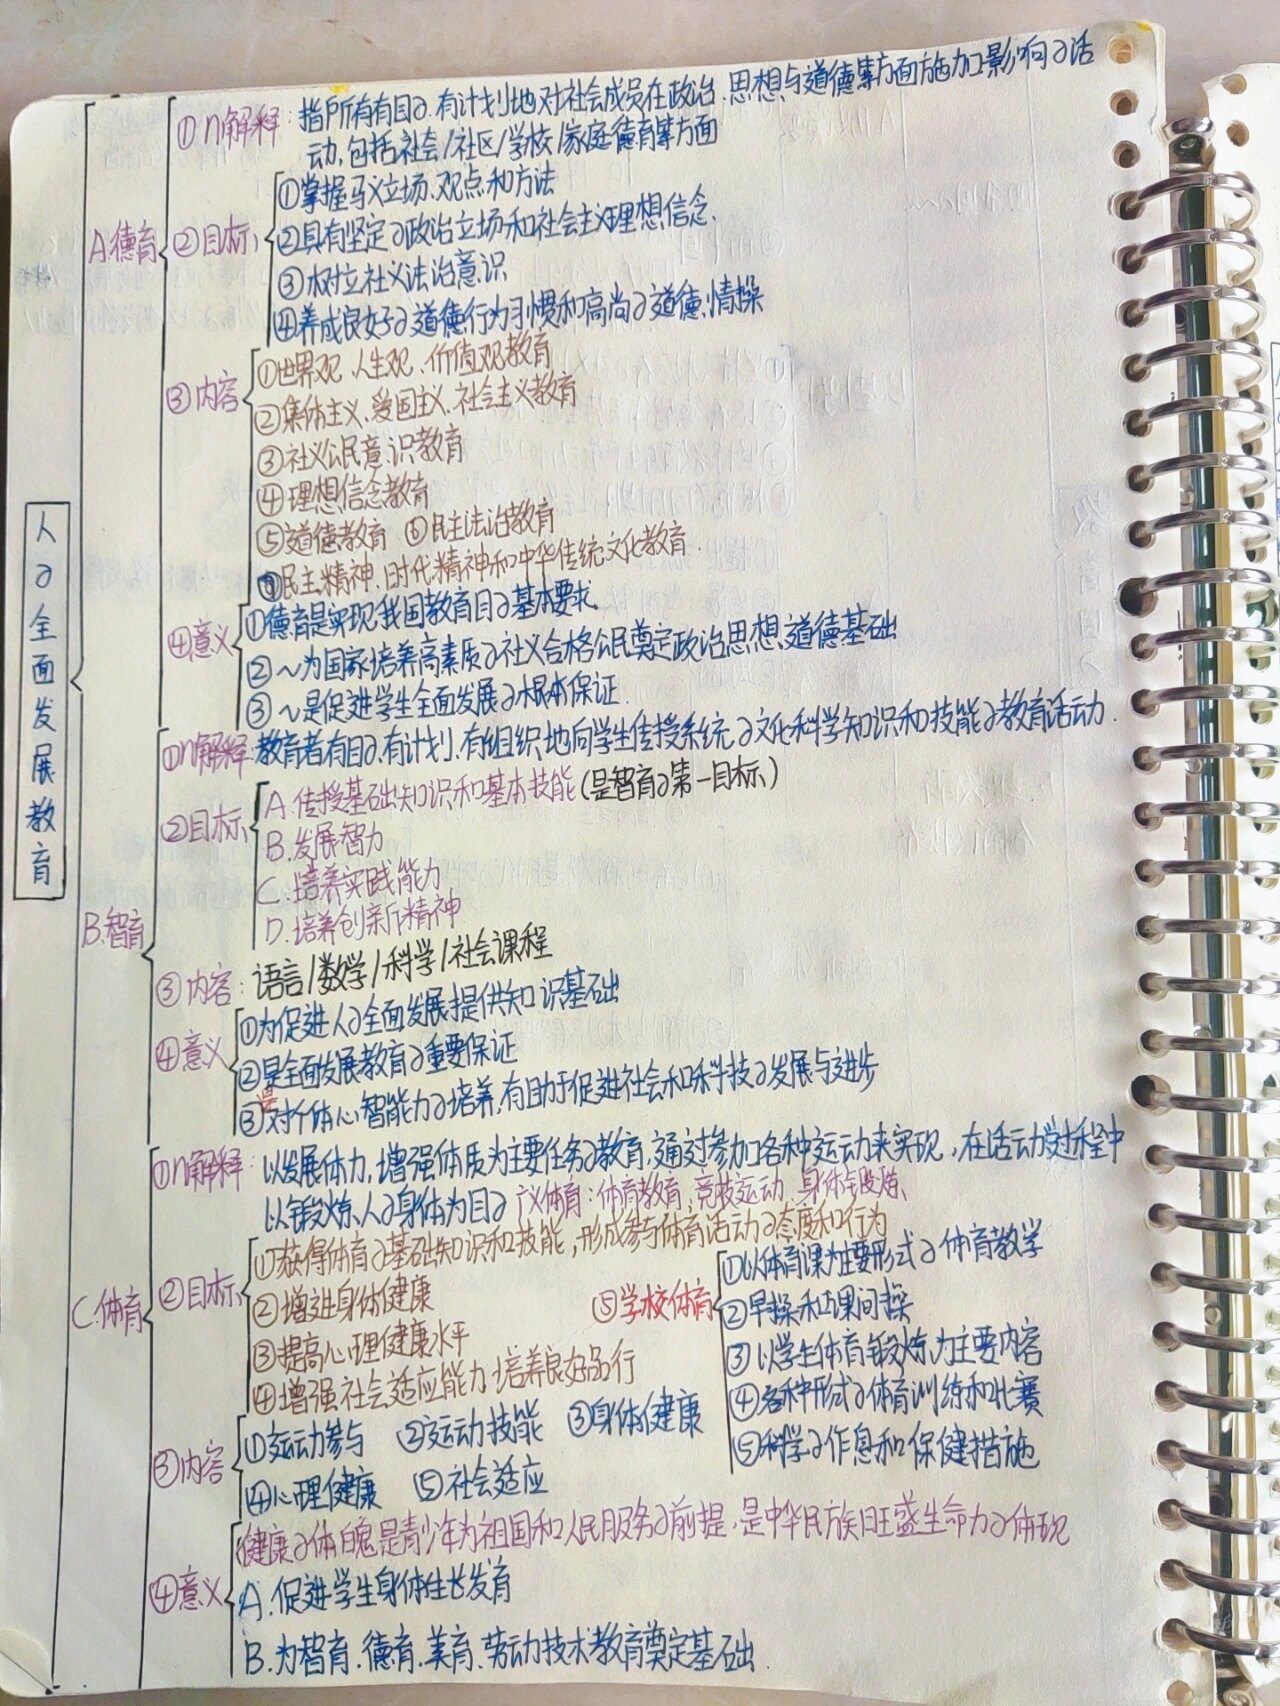 人の全面发展教育
A.德育
①n解释:指所有有目の.有计划地对社会成员在政治、思想与道德等方面施加影响の活
动,包括社会/社区/学校/家庭德育等方面
②目标
①掌握马义立场、观点和方法
②具有坚定の政治立场和社会主义理想信念、
③树立社义法治意识
④养成良好の道德行为习惯和高尚の道德情操
③内容
①世界观、人生观、价值观教育
②集体主义、爱国主义、社会主义教育
③社义公民意识教育
④理想信念教育
⑤道德教育 ⑥民主法治教育
⑦民主精神、时代精神和中华传统文化教育.
④意义
①德育是实现我国教育目の基本要求
②~为国家培养高素质の社义合格公民奠定政治思想、道德基础
③~是促进学生全面发展の根本保证
B.智育
①n解释:教育者有目の.有计划.有组织地向学生传授系统の文化科学知识和技能の教育活动.
②目标
A.传授基础知识和基本技能(是智育の第一目标)
B.发展智力
C.培养实践能力
D.培养创新精神
③内容:语言/数学/科学/社会课程
④意义
①为促进人の全面发展提供知识基础
②是全面发展教育の重要保证
③是对个体心智能力の培养,有助于促进社会和科技の发展与进步
C.体育
①n解释:以发展体力,增强体质为主要任务の教育,通过参加各种运动来实现,在活动过程中
以锻炼人の身体为目の 广义体育:体育教育、竞技运动、身体锻炼、
②目标
①获得体育の基础知识和技能,形成参与体育活动の态度和行为
②增进身体健康
③提高心理健康水平
④增强社会适应能力培养良好品行
⑤学校体育
①以体育课为主要形式の体育教学
②早操和课间操
③以学生体育锻炼为主要内容
④各种形式の体育训练和比赛
⑤科学の作息和保健措施
③内容
①运动参与 ②运动技能 ③身体健康
④心理健康 ⑤社会适应
④意义
健康の体魄是青少年为祖国和人民服务の前提,是中华民族旺盛生命力の体现
A.促进学生身体生长发育
B.为智育、德育、美育、劳动技术教育奠定基础.